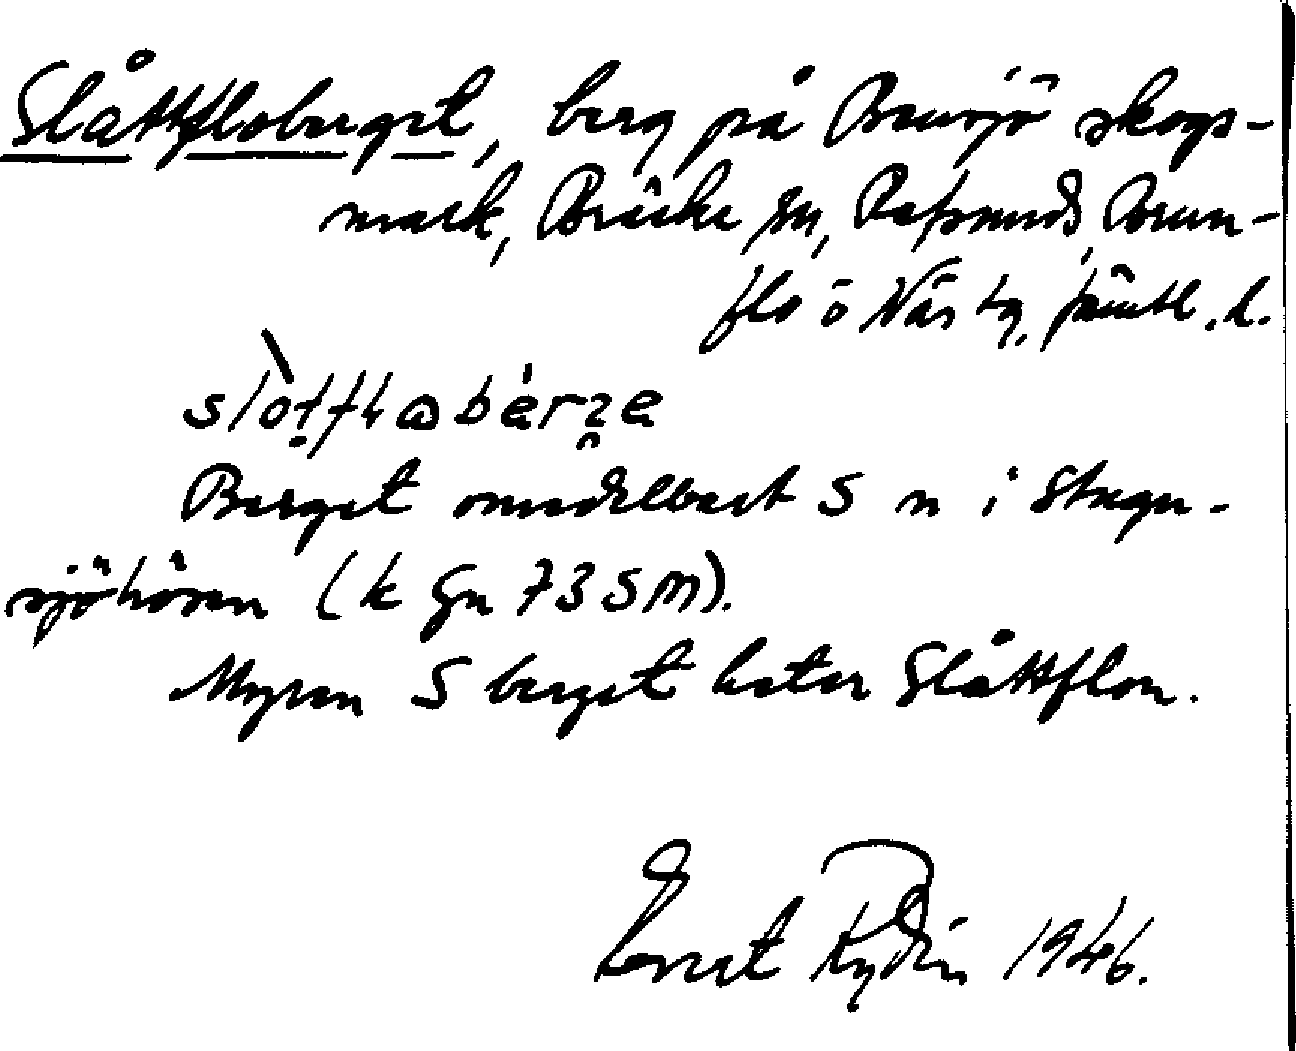 Slåttfloberget, berg på Bensjö skogs-
mark, Bräcke sn, Refsunds, Brun-
flo o Näs tg, Jämtl. l.
Berget omedelbart S n i Stugu-
sjöhören (k Gn 73 5 M).
Myren S berget heter Slåttflon.
Ernst Rydin 1946.